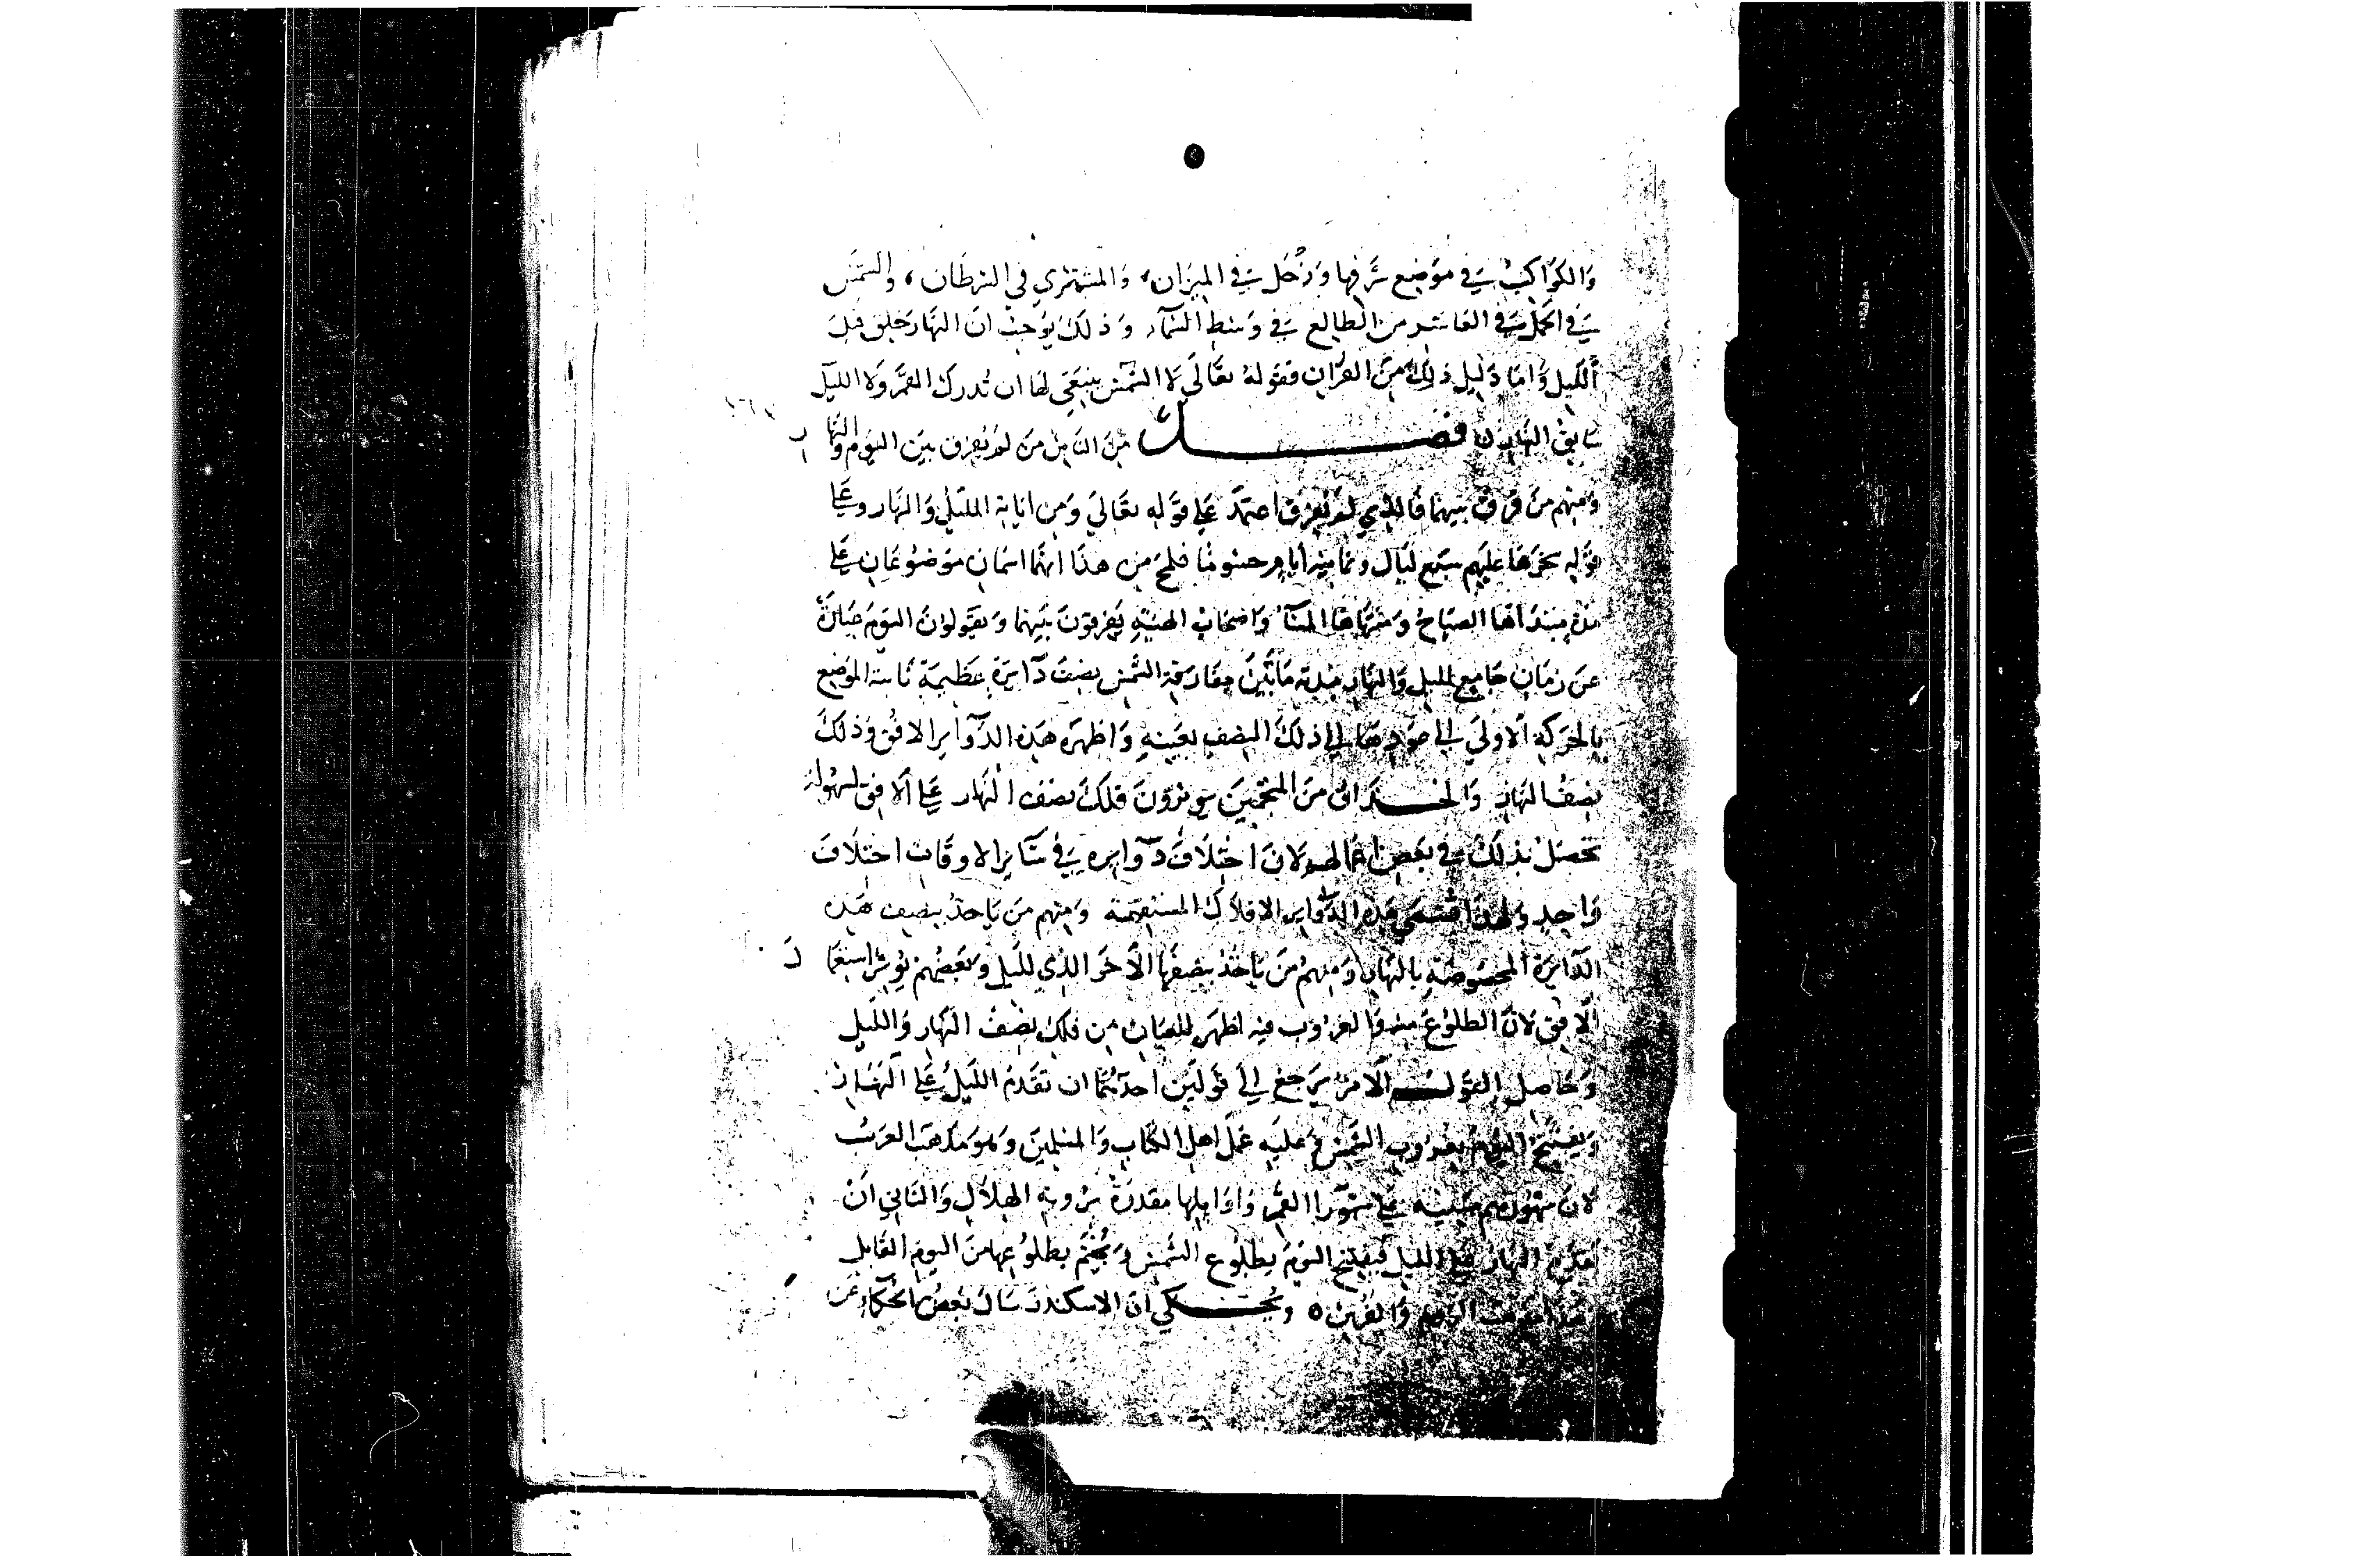 وَالكَوَاكِبُ فِي مَوضِع شَرَفِها وَزُحَل فِي المِيزَان، وَالمُشتَرِي فِي السَرطَان، وَالشَمسَ
فِي الحَمَل فِي العَاشِر من الطَالِع فِي وَسَطِ السَّمَآء وَذلكَ يُوجبُ انَّ النَهَار خلِق قبلَ
اَللَّيل وَامَّا دَلِيل ذلِكَ مِنَ القرانِ فقولهُ تعَالَى لَا الشَّمس ينبَغِي لهَا ان تُدركَ القمَر وَلا اللَّيل
سَابِقُ النَهَارِ فصــــل مِنَ النَاسِ مَن لم يُفرق بَينَ اليَوم وَالنهَار
وَمِنهم مَن فرقَ بَينهمَا فَالذِي لم يُفرق اعتمَدَ عَلى قَوله تعَالَى وَمن ايَاته الليل وَالنهَار وعَلى
قوَله سَخرَهَا عَليهم سَبعَ لَيَال وثمَانِية أيَام حسُومًا من هذَا انهمَا اسمَانِ مَوضوعَانِ عَلى
مدة مبتدَاهَا الصبَاحُ وَمنتهَاهَا المسَآءُ وَاصحَابُ الهيئَةِ يَفرقونَ بَينهما وَيقولونَ اليَومُ عِبَارَة
عَن زمَانٍ جَامِع لليل وَالنهَار مدة مَا بَينَ مفَارقة الشَّمس نِصفَ دَآئرَة عَظيمَة ثَابتة المَوضِع
بِالحَركَة الاولَى الى عَودهَا الى ذلكَ النِصف بعَينِه وَاظهرَ هَذه الدَّوَآئر الافُق وَذلكَ
نِصفُ النهَار وَالحــذاق من المنجّمِينَ يُوثرُونَ فلكَ نصف النَهار عَلى الافق لسهُولة
تحصلُ بذلكَ فِي بعَض اعمالهم لانَّ اختلَافَ دَوَآئره فِي سَآئر الاوقَات اختلَافَ
وَاحِد وَلهذا تسَمى هذه الدَّوآئر الافلَاك المستقِيمة وَمنهم مَن يَاخذُ بِنصف هَذه
الدَّائرَة المخصُوصَةِ بالنهَار وَمِنهُم مَن يَاخذُ بِنصفهَا الآخر الذي للَّيل وَبعَضهُم يُوثر استعمَال
الافق لانَّ الطلوُعَ منه وَالغروب فيه اظهر للعيَانِ مِن فلكِ نصْفُ النَهَار وَاللَّيل
وَحَاصِل القَول الامر يرجع الى قَولَين احدهُمَا ان تقدَمَ اللَّيلُ عَلى النَهَار
وَيفتتح اليَوم بغرُوب الشَّمس وَعَليه عَمل اهل الكتَاب وَالمسلِمين وَهو مَذهَب العَرَب
لانَّ شهُورهم مبنية عَلى شهور القمر وَاوَايلها مقدرَةُ برُوية الهلَال وَالثَانِي انْ
تقدم النهَار عَلى الليل فيفتتح اليَوم بطلُوع الشَّمس وَيُختَم بطلوُعِها من اليَوم القَابِل
وَهذا مذهب الروم وَالفرس ٥ وَيحــكي انَّ الاسكندر سَال بَعضُ الحكمآء عَن